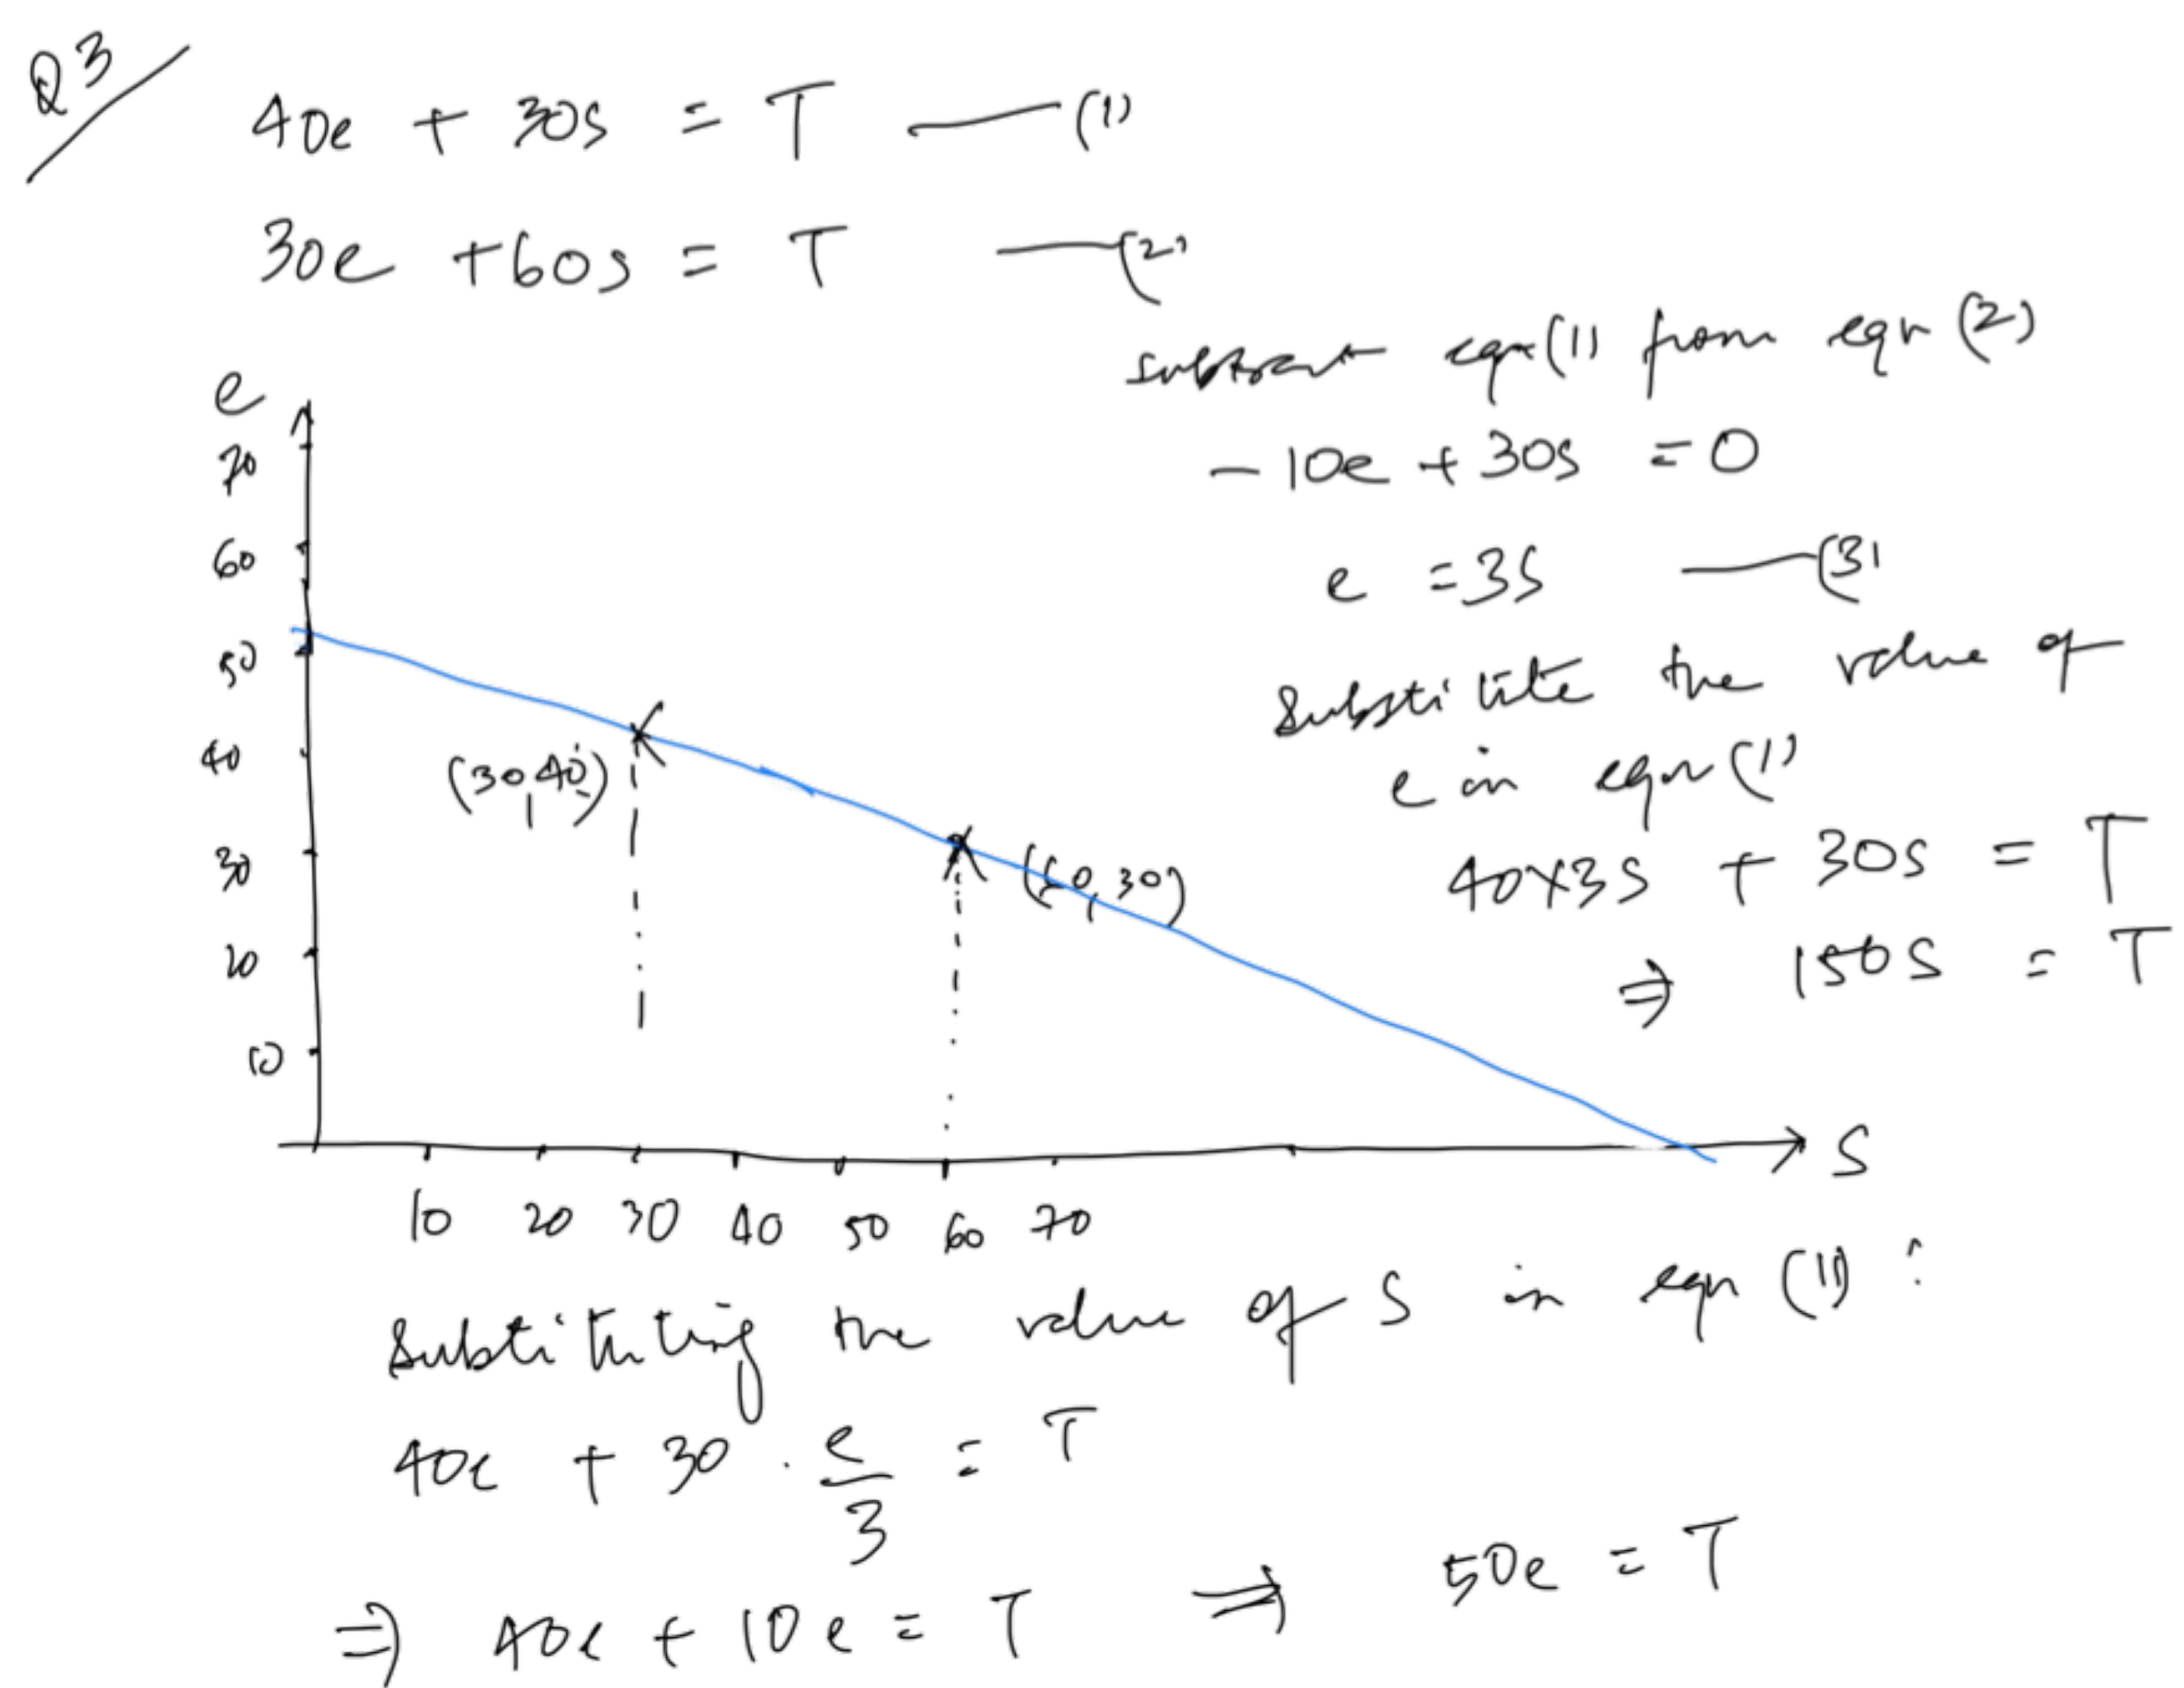 Q3
40e + 30s = T —— (1)
30e + 60s = T —— (2)
subtract eqn (1) from eqn (2)
-10e + 30s = 0
e = 3s —— (3)
Substitute the value of
e in eqn (1)
40×3s + 30s = T
⇒ 150s = T
e
70
60
50
40
30
20
10
(30,40)
(60,30)
s
10 20 30 40 50 60 70
Substituting the value of s in eqn (1) :
40e + 30 . e/3 = T
⇒ 40e + 10e = T ⇒ 50e = T